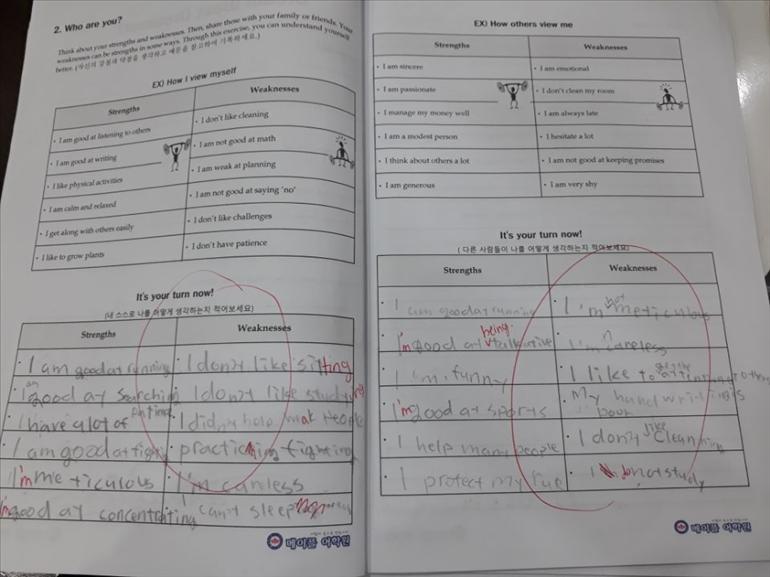 2. Who are you?
Think about your strengths and weaknesses. Then, share those with your family or friends. Your
weaknesses can be strengths in some ways. Through this exercise, you can understand yourself
better. (자신의 강점과 약점을 생각하고 예문을 참고하여 기록하세요.)
EX) How I view myself
Strengths
Weaknesses
• I am good at listening to others
• I don't like cleaning
• I am good at writing
• I am not good at math
• I like physical activities
• I am weak at planning
• I am calm and relaxed
• I am not good at saying 'no'
• I get along with others easily
• I don't like challenges
• I like to grow plants
• I don't have patience
It's your turn now!
(내 스스로 나를 어떻게 생각하는지 적어보세요)
Strengths
Weaknesses
• I am good at running
• I don't like sitting
• I am good at searching
• I don't like studying
• I have a lot of
• I didn't help weak people
• I am good at fight
practicing fighting
I'm me ticulous
• I'm careless
I'm good at concentrating
can't sleep
메이플 어학원
EX) How others view me
Strengths
Weaknesses
• I am sincere
• I am emotional
• I am passionate
• I don't clean my room
• I manage my money well
• I am always late
• I am a modest person
• I hesitate a lot
• I think about others a lot
• I am not good at keeping promises
• I am generous
• I am very shy
It's your turn now!
( 다른 사람들이 나를 어떻게 생각하는지 적어보세요)
Strengths
Weaknesses
• I am good at running
• I'm not meticulous
I'm good at being talkative
• I'm careless
• I'm funny
• I like to
• I'm good at sports
• My hand writing is
poor
• I help many people
• I don't like cleaning
• I protect my
• I not study
메이플 어학원